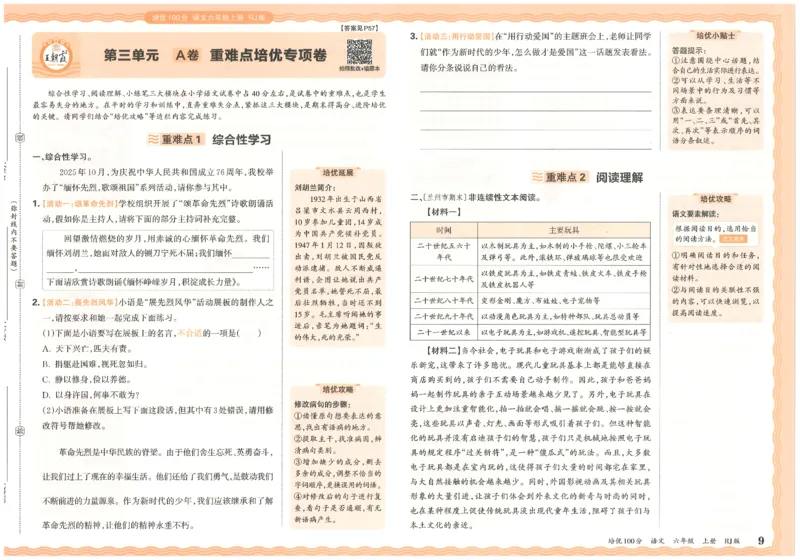 培优100分 语文六年级上册 RJ版
【答案见P57】
王朝霞
第三单元 A卷 重难点培优专项卷
拍照批改+错题本
综合性学习、阅读理解、小练笔三大模块在小学语文试卷中占40分左右,是试卷中的重难点,也是学生
最容易失分的地方。在平时的学习和训练中,直奔重难失分点,紧抓这三大模块,是期末得高分、进阶培优
的关键。请同学们结合“培优攻略”等边栏内容完成练习。
重难点1 综合性学习
一、综合性学习。
2025年10月,为庆祝中华人民共和国成立76周年,我校举
办了“缅怀先烈,歌颂祖国”系列活动,请你参与其中。
1.【活动一:颂革命先烈】学校组织开展了“颂革命先烈”诗歌朗诵活
动,假如你是主持人,请将下面的部分主持词补充完整。
回望激情燃烧的岁月,用赤诚的心缅怀革命先烈。我们
缅怀刘胡兰,她面对敌人的铡刀宁死不屈;我们缅怀
,
……
下面请欣赏诗歌朗诵《缅怀峥嵘岁月,积淀成长力量》。
2.【活动二:展先烈风华】小语是“展先烈风华”活动展板的制作人之
一,请按要求和她一起完成下面练习。
(1)下面是小语要写在展板上的名言,不合适的一项是( )
A. 天下兴亡,匹夫有责。
B. 捐躯赴国难,视死忽如归。
C. 静以修身,俭以养德。
D. 以身许国,何事不敢为?
(2)小语准备在展板上写下面这段话,但其中有3处错误,请用修
改符号帮她修改。
革命先烈是中华民族的脊梁。由于他们舍生忘死、英勇奋斗,
让我们过上了现在的幸福生活。他们还给了我们勇气,是鼓动我们
不断前进的力量源泉。作为新时代的少年,我们应该继承和了解
革命先烈的精神,让他们的精神永垂不朽。
培优延展
刘胡兰简介:
1932年出生于山西省
吕梁市文水县云周西村,
10岁参加儿童团,14岁成
为中国共产党候补党员。
1947年1月12日,因叛徒
出卖,刘胡兰被国民党反
动派逮捕。敌人不断威逼
利诱,企图让她说出共产
党员名单,她誓死不屈,最
后壮烈牺牲,当时还不到
15岁。毛主席听闻她的事
迹后,亲笔为她题词:“生
的伟大,死的光荣。”
培优攻略
修改病句的步骤:
①读懂原句想要表达的意
思,找出有语病的地方。
②提取主干,找准病因,辨
清病句类别。
③增加缺少的成分,删去
多余的成分,调整不恰当的
字词顺序,更换误用的词语。
④对修改后的句子进行复
查,看句子是否通顺,有无
新语病产生。
3.【活动三:用行动爱国】在“用行动爱国”的主题班会上,老师让同学
们就“作为新时代的少年,怎么做才是爱国”这一话题发表看法。
请你分条说说自己的看法。
培优小贴士
答题提示:
①注意围绕中心话题,结
合自己的生活实际进行表达。
②可以从学习、生活等不
同场景中的行为及习惯等
方面来说。
③表达要条理清晰,可以
用“一、二、三”或“首先、其
次、再次”等表示顺序的词
语分条叙述。
重难点2 阅读理解
二、[兰州市期末]非连续性文本阅读。
【材料一】
时间 主要玩具
二十世纪五六十年代 以木制玩具为主,如木制的小手枪、陀螺、小三轮车及弹弓等。此外,滚铁环、弹玻璃球等也很受欢迎
二十世纪七十年代 以铁皮玩具为主,如铁皮青蛙、铁皮大车、铁皮手枪及铁皮机器人等
二十世纪八十年代 变形金刚、魔方、布娃娃、电子宠物等
二十世纪九十年代 以动漫角色玩具为主,如特种部队、玩具总动员等
二十一世纪以来 以电子玩具为主,如游戏机、遥控玩具、智能型玩具等
【材料二】当今社会,电子玩具和电子游戏渐渐成了孩子们的娱
乐新宠,这带来了许多隐忧。现代儿童玩具基本上都是能够直接在
商店购买到的,孩子们不需要自己动手制作。因此,孩子和爸爸妈
妈一起制作玩具的亲子互动场景越来越少见了。另外,电子玩具在
设计上更加注重智能化,拍一拍就会唱、摇一摇就会跳、按一按就会
亮,这些玩具以声音、灯光、画面等形式吸引着孩子们。但这种智能
化的玩具并没有启迪孩子们的智慧,孩子们只是机械地按照电子玩
具的规定程序“过关斩将”,是一种“傻瓜式”的玩法。而且,大多数
电子玩具都是在室内玩的,这使得孩子们大量的时间都宅在家里,
与大自然接触的机会越来越少。同时,外国影视动画及其相关玩具
形象的大量引进,让孩子们体会到外来文化的新奇与时尚的同时,
也在某种程度上促使传统玩具淡出现代童年生活,阻碍了孩子们与
本土文化的亲近。
培优攻略
语文要素解读:
根据阅读目的,选用恰当
的阅读方法。
①明确阅读目的和任务,
有针对性地选择合适的阅
读材料。
②与阅读目的关联性不强
的内容,可以快速浏览,以
提高阅读速度。
培优100分 语文 六年级 上册 RJ版 9
(弥封线内不要答题)